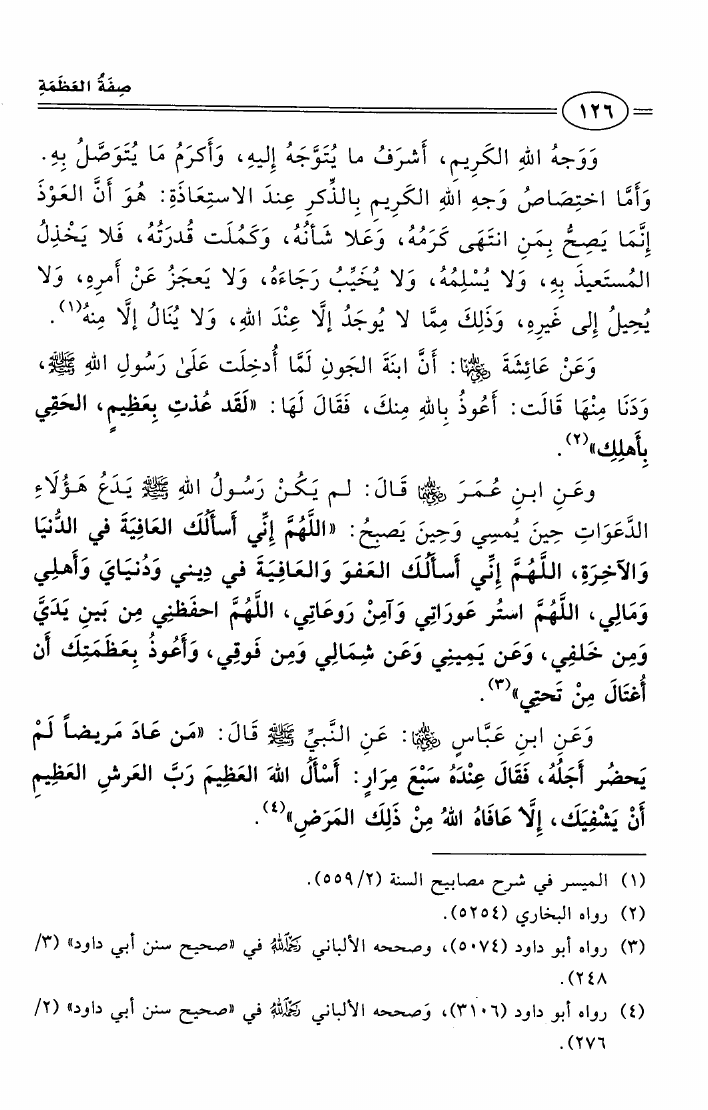 صِفَةُ العَظَمَةِ
١٢٦
وَوَجهُ اللهِ الكَرِيمِ، أَشرَفُ ما يُتَوَجَّهُ إِليهِ، وَأَكرَمُ مَا يُتَوَصَّلُ بِهِ.
وَأَمَّا اختِصَاصُ وَجهِ اللهِ الكَرِيمِ بِالذِّكرِ عِندَ الاستِعَاذَةِ: هُوَ أَنَّ العَوْذَ
إِنَّمَا يَصِحُّ بِمَنِ انتَهَى كَرَمُهُ، وَعَلا شَأنُهُ، وَكَمُلَت قُدرَتُهُ، فَلا يَخْذِلُ
المُستَعيذَ بِهِ، وَلا يُسْلِمُهُ، وَلا يُخَيِّبُ رَجَاءَهُ، وَلا يَعجَزُ عَنْ أَمرِهِ، وَلا
يُحِيلُ إلى غَيرِهِ، وَذَلِكَ مِمَّا لا يُوجَدُ إلَّا عِنْدَ اللهِ، وَلا يُنَالُ إلَّا مِنهُ(١).
وَعَنْ عَائِشَةَ رضي الله عنها: أَنَّ ابنَةَ الجَونِ لَمَّا أُدخِلَت عَلَىٰ رَسُولِ اللهِ ﷺ،
وَدَنَا مِنْهَا قَالَت: أَعُوذُ بِاللهِ مِنكَ، فَقَالَ لَهَا: «لَقَد عُذتِ بِعَظِيمٍ، الحَقِي
بِأَهلِكِ»(٢).
وعَنِ ابنِ عُمَرَ رضي الله عنهما قَالَ: لم يَكُنْ رَسُولُ اللهِ ﷺ يَدَعُ هَؤُلَاءِ
الدَّعَوَاتِ حِينَ يُمسِي وَحِينَ يَصبحُ: «اللَّهُمَّ إِنِّي أَسأَلُكَ العَافِيَةَ في الدُّنيَا
وَالآخِرَةِ، اللَّهُمَّ إِنِّي أَسأَلُكَ العَفوَ وَالعَافِيَةَ في دِيني وَدُنيَايَ وَأَهلِي
وَمَالِي، اللَّهُمَّ استُر عَورَاتِي وَآمِنْ رَوعَاتِي، اللَّهُمَّ احفَظنِي مِن بَينِ يَدَيَّ
وَمِن خَلفِي، وَعَن يَمِينِي وَعَن شِمَالِي وَمِن فَوقِي، وَأَعُوذُ بِعَظَمَتِكَ أَن
أُغتَالَ مِنْ تَحتِي»(٣).
وَعَنِ ابنِ عَبَّاسٍ رضي الله عنهما: عَنِ النَّبيِّ ﷺ قَالَ: «مَن عَادَ مَرِيضاً لَمْ
يَحضُر أَجَلُهُ، فَقَالَ عِنْدَهُ سَبْعَ مِرَارٍ: أَسْأَلُ اللهَ العَظِيمَ رَبَّ العَرشِ العَظِيمِ
أَنْ يَشْفِيَكَ، إِلَّا عَافَاهُ اللهُ مِنْ ذَلِكَ المَرَضِ»(٤).
(١) الميسر في شرح مصابيح السنة (٢/ ٥٥٩).
(٢) رواه البخاري (٥٢٥٤).
(٣) رواه أبو داود (٥٠٧٤)، وصححه الألباني رحمه الله في «صحيح سنن أبي داود» (٣/
٢٤٨).
(٤) رواه أبو داود (٣١٠٦)، وَصححه الألباني رحمه الله في «صحيح سنن أبي داود» (٢/
٢٧٦).